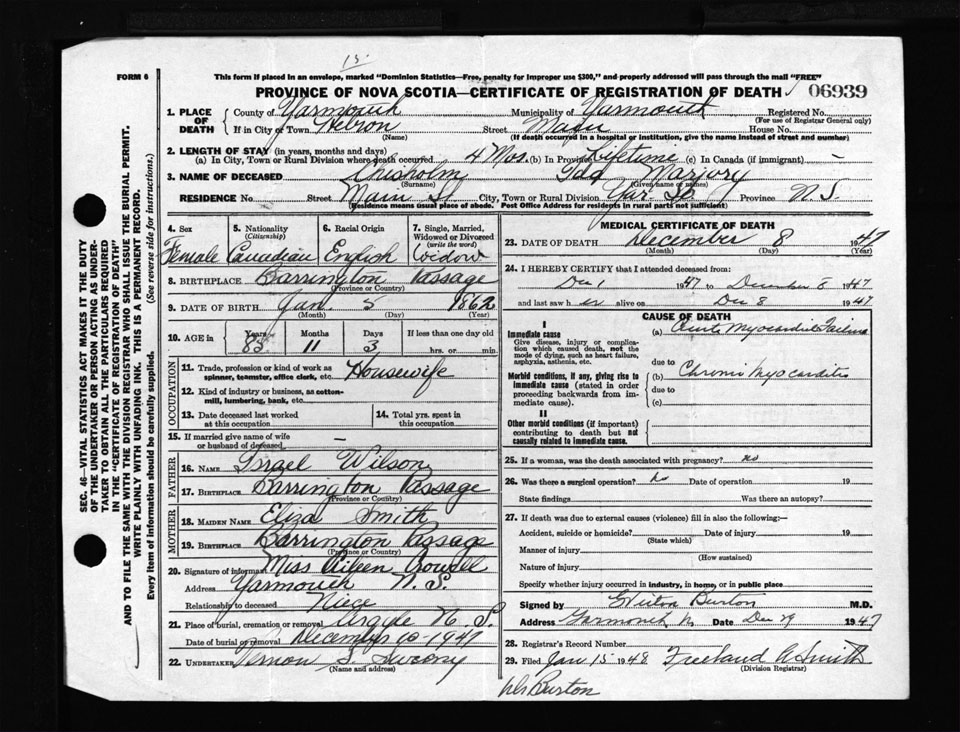 15
FORM 6
This form if placed in an envelope, marked "Dominion Statistics—Free, penalty for improper use $300," and properly addressed will pass through the mail "FREE"
PROVINCE OF NOVA SCOTIA—CERTIFICATE OF REGISTRATION OF DEATH 06939
1. PLACE OF DEATH County of Yarmouth Municipality of Yarmouth Registered No.
(For use of Registrar General only)
If in City or Town Hebron Street Main House No.
(Name) (If death occurred in a hospital or institution, give the name instead of street and number)
2. LENGTH OF STAY (in years, months and days)
(a) In City, Town or Rural Division where death occurred 4 Mos. (b) In Province Lifetime (c) In Canada (if immigrant) –
3. NAME OF DECEASED Chisholm Marjory
(Surname) (Given name or names)
RESIDENCE No. Street Main St City, Town or Rural Division Yar. Province N.S.
(Residence means usual place of abode. Post Office Address for residents in rural parts not sufficient)
4. Sex 5. Nationality (Citizenship) 6. Racial Origin 7. Single, Married, Widowed or Divorced (write the word)
Female Canadian English Widow
8. BIRTHPLACE Barrington Passage
(Province or Country)
9. DATE OF BIRTH Jan. 5 1862
(Month) (Day) (Year)
10. AGE in Years Months Days If less than one day old
85 11 3 hrs. or min.
OCCUPATION
11. Trade, profession or kind of work as spinner, teamster, office clerk, etc. Housewife
12. Kind of industry or business, as cotton-mill, lumbering, bank, etc.
13. Date deceased last worked at this occupation 14. Total yrs. spent in this occupation
15. If married give name of wife or husband of deceased –
FATHER
16. NAME Israel Wilson
17. BIRTHPLACE Barrington Passage
(Province or Country)
MOTHER
18. MAIDEN NAME Eliza Smith
19. BIRTHPLACE Barrington Passage
(Province or Country)
20. Signature of informant Miss Aileen Crowell
Address Yarmouth N.S.
Relationship to deceased Niece
21. Place of burial, cremation or removal Argyle N.S.
Date of burial or removal December 10 - 1947
22. UNDERTAKER Vernon Sweeny
(Name and address)
MEDICAL CERTIFICATE OF DEATH
23. DATE OF DEATH December 8 1947
(Month) (Day) (Year)
24. I HEREBY CERTIFY that I attended deceased from:
Dec 1 1947 to December 8 1947
and last saw her alive on Dec 8 1947
CAUSE OF DEATH
I
Immediate cause (a) Acute Myocardial Failure
Give disease, injury or complication which caused death, not the mode of dying, such as heart failure, asphyxia, asthenia, etc.
due to
Morbid conditions, if any, giving rise to immediate cause (stated in order proceeding backwards from immediate cause). (b) Chronic Myocarditis
due to
(c)
II
Other morbid conditions (if important) contributing to death but not causally related to immediate cause.
25. If a woman, was the death associated with pregnancy? no
26. Was there a surgical operation? no Date of operation 19
State findings Was there an autopsy?
27. If death was due to external causes (violence) fill in also the following:—
Accident, suicide or homicide? Date of injury 19
(State which)
Manner of injury
(How sustained)
Nature of injury
Specify whether injury occurred in industry, in home, or in public place
Signed by Burton M.D.
Address Yarmouth, N. Date Dec 29 1947
28. Registrar's Record Number
29. Filed Jan 15 1948 Freeland A Smith
(Division Registrar)
Burton
SEC. 46—VITAL STATISTICS ACT MAKES IT THE DUTY
OF THE UNDERTAKER OR PERSON ACTING AS UNDER-
TAKER TO OBTAIN ALL THE PARTICULARS REQUIRED
IN THE "CERTIFICATE OF REGISTRATION OF DEATH"
AND TO FILE THE SAME WITH THE DIVISION REGISTRAR WHO SHALL ISSUE THE BURIAL PERMIT.
WRITE PLAINLY WITH UNFADING INK. THIS IS A PERMANENT RECORD.
Every item of information should be carefully supplied. (See reverse side for instructions.)